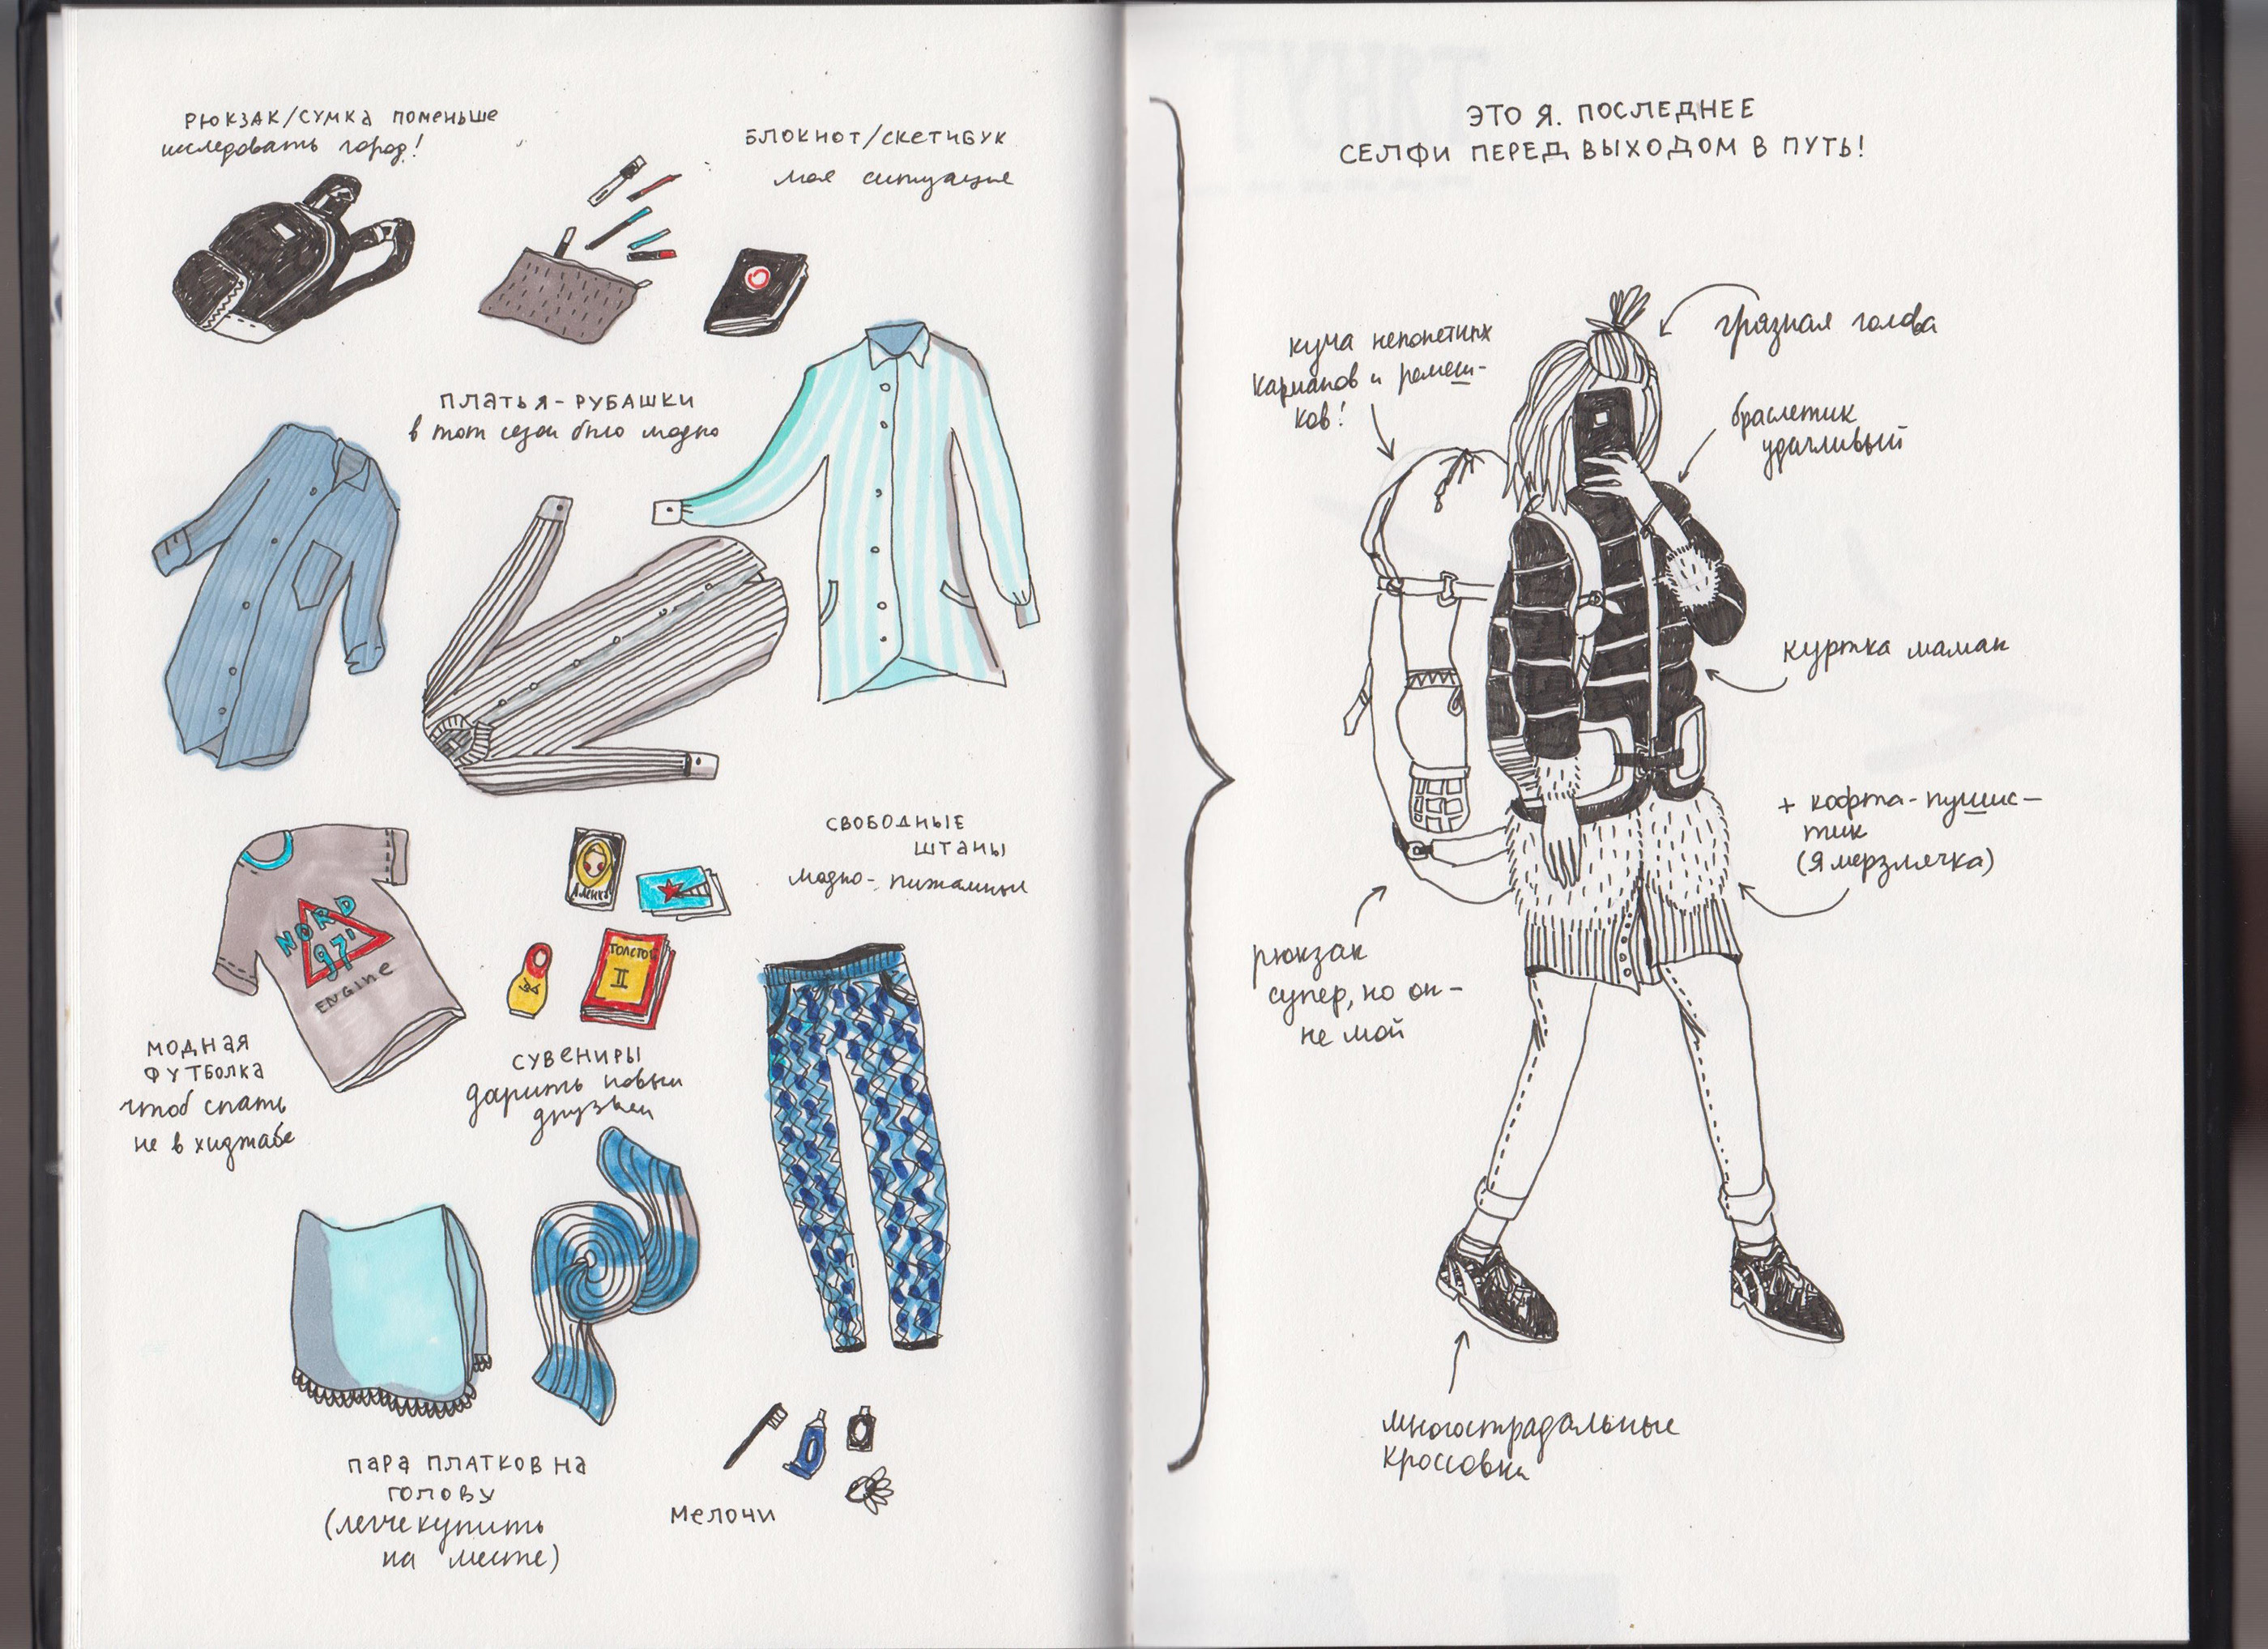 РЮКЗАК/СУМКА ПОМЕНЬШЕ
исследовать город!
БЛОКНОТ/СКЕТЧБУК
мое ситуация
ПЛАТЬЯ-РУБАШКИ
в тот сезон было модно
NORD
97'
ENGINE
МОДНАЯ
ФУТБОЛКА
чтоб спать
не в хиджабе
АЛЕНКА
ТОЛСТОЙ
II
СУВЕНИРЫ
дарить новым
друзьям
СВОБОДНЫЕ
ШТАНЫ
модно-пижамные
ПАРА ПЛАТКОВ НА
ГОЛОВУ
(легче купить
на месте)
МЕЛОЧИ
ЭТО Я. ПОСЛЕДНЕЕ
СЕЛФИ ПЕРЕД ВЫХОДОМ В ПУТЬ!
куча непонятных
карманов и ремеш-
ков!
грязная голова
браслетик
удачливый
куртка маман
+ кофта-пушис-
тик
(я мерзлячка)
рюкзак
супер, но он -
не мой
многострадальные
кроссовки